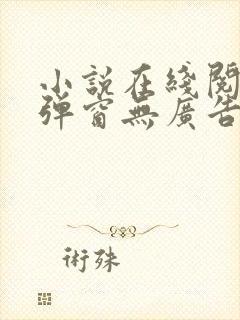 小說在綫閱
彈窗無廣告
術殊